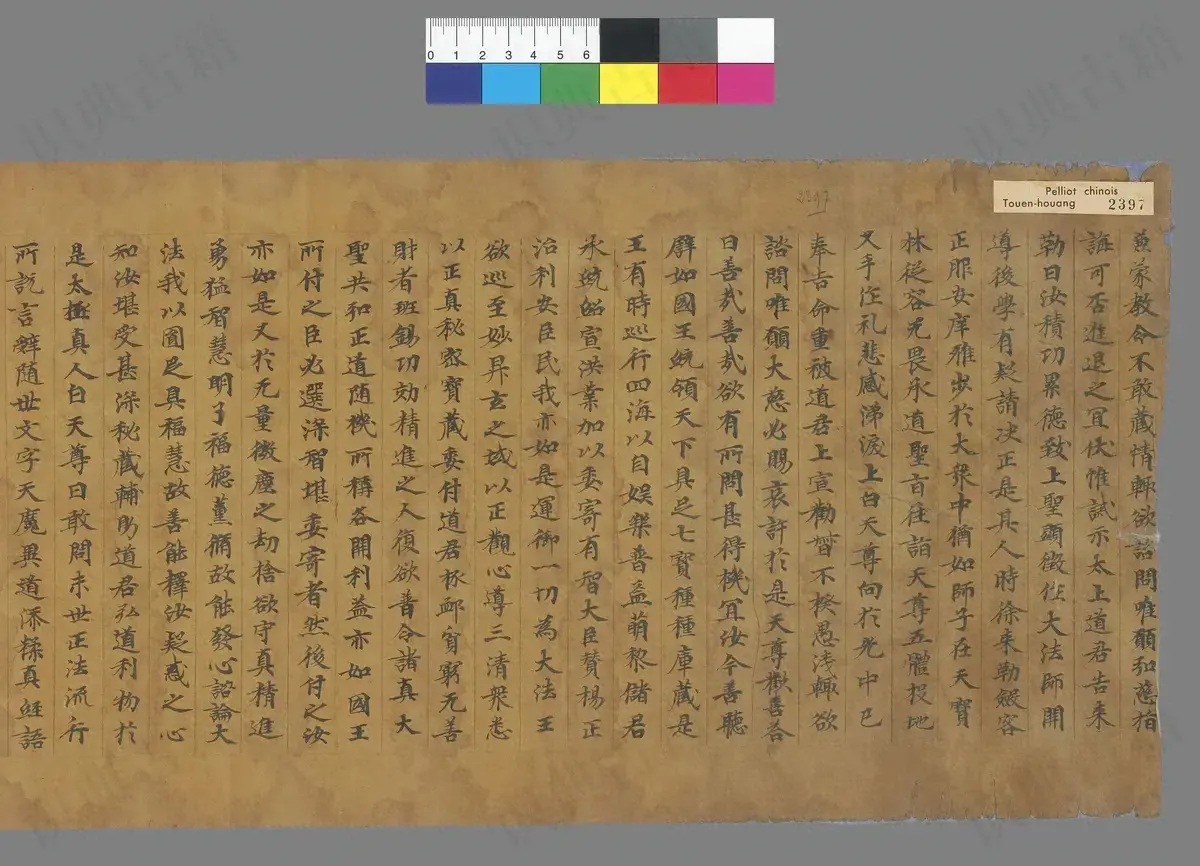 0 1 2 3 4 5 6
2397
Pelliot chinois
Touen-houang 2397
蒙教命不敢藏情輙欲諮問唯願和慈指
誨可否進退之冝伏惟試示太上道君告来
勒曰汝積功累德致上聖顯徵位大法師開
導後學有疑請决正是其人時徐来勒斂容
正服安庠雅步於大衆中猶如師子在天寳
林從容无畏承道聖旨往詣天尊五體投地
叉手作礼悲感涕淚上白天尊向於光中已
奉告命重被道君上宣勸暂不揆愚浅輙欲
諮問唯願大慈必賜哀許於是天尊歡喜荅
曰善㢤善㢤欲有所問甚得機冝汝今善聽
譬如國王統領天下具足七寳種種庫藏是
王有時巡行四海以自娱樂普益萌黎儲君
承統紹宣洪業加以委寄有智大臣賛楊正
治利安臣民我亦如是運御一切為大法王
欲巡至妙昇玄之域以正觀心導三清衆悉
以正真秘密寳藏委付道君拯䘏貧窮无善
財者班錫功効精進之人復欲普令諸真大
聖共和正道随機所稱各開利益亦如國王
所付之臣必選深智堪委寄者然後付之汝
亦如是又於无量微塵之劫捨欲守真精進
勇猛智慧明了福德薰脩故能發心諮論大
法我以圓足具福慧故善能釋汝疑惑之心
知汝堪受甚深秘藏輔助道君弘道利物於
是太極真人白天尊曰敢問末世正法流行
所説言辤随世文字天魔異道添糅真經語